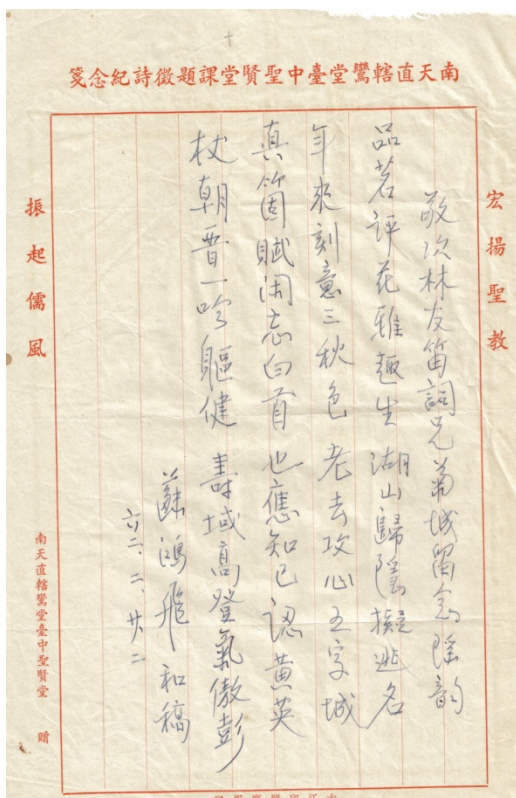 南天直轄鸞堂臺中聖賢堂課題徵詩紀念箋
宏揚聖教
敬次林友笛詞兄菊城留念瑤韵
品茗評花雅趣生 湖山歸隱擬逃名
年來刻意三秋色 老去攻心五字城
真箇賦閒忘白首 也應知己認黃英
杖朝晋一吟軀健 壽域高登氣傲彭
蘇鴻飛和稿
六二、二、廿二
振起儒風
南天直轄鸞堂臺中聖賢堂 贈